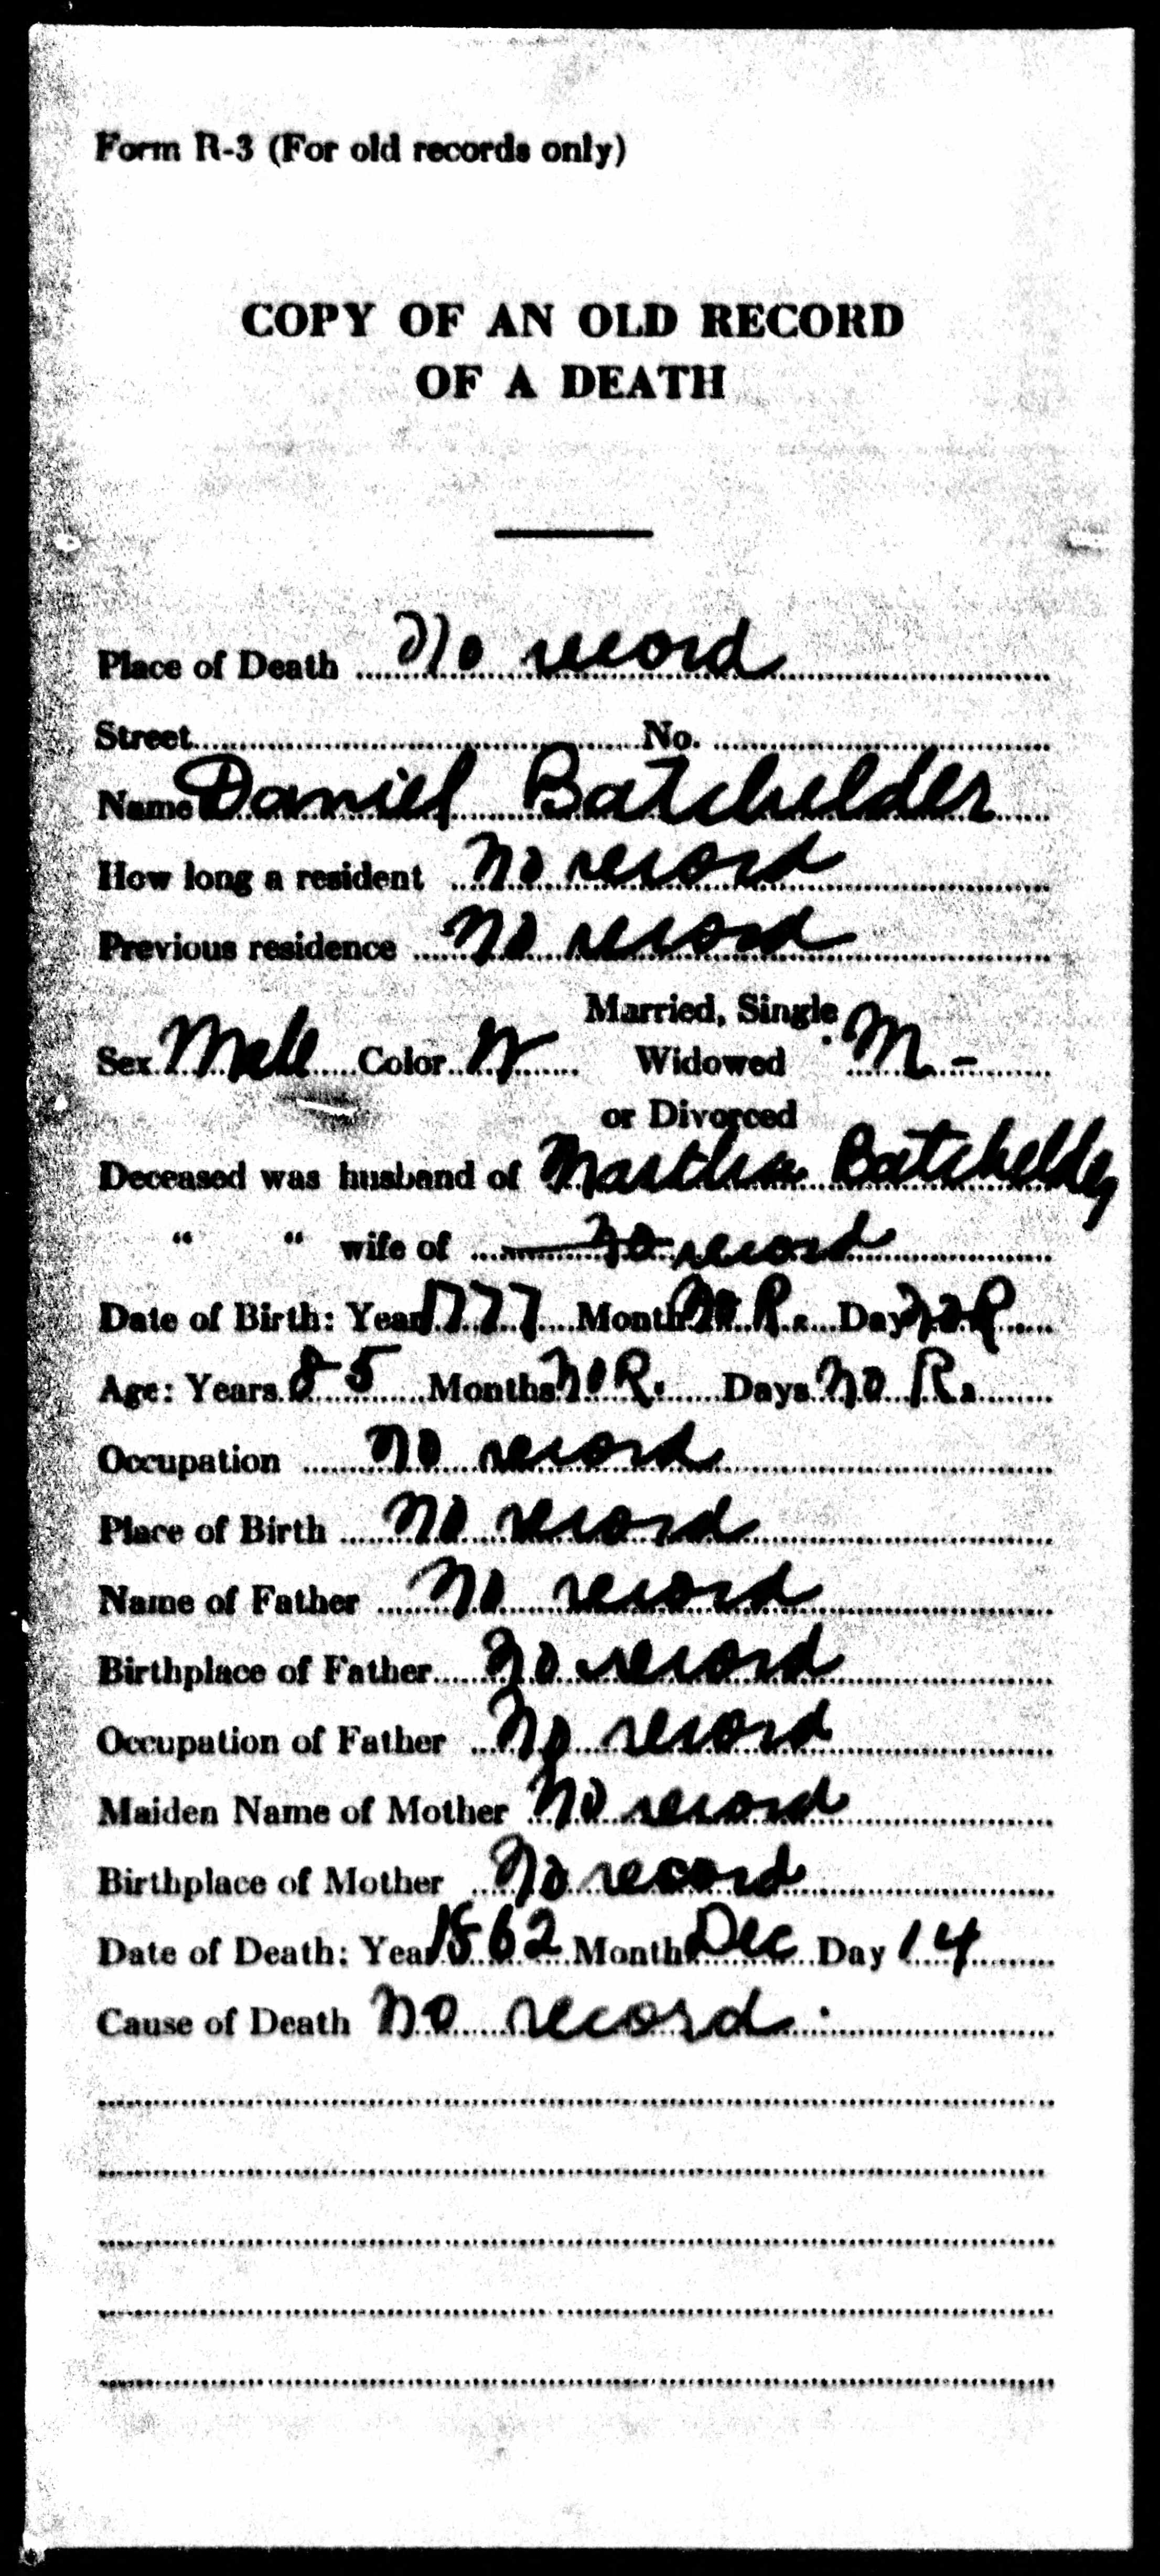 Form R-3 (For old records only)
COPY OF AN OLD RECORD
OF A DEATH
Place of Death No record
Street No.
Name Daniel Batchelder
How long a resident no record
Previous residence no record
Married, Single
Sex Male Color W Widowed M -
or Divorced
Deceased was husband of Martha Batchelder
" " wife of no record
Date of Birth: Year 1777 Month no R. Day no R.
Age: Years 85 Months no R. Days no R.
Occupation no record
Place of Birth no record
Name of Father no record
Birthplace of Father no record
Occupation of Father no record
Maiden Name of Mother no record
Birthplace of Mother no record
Date of Death: Year 1862 Month Dec Day 14
Cause of Death no record